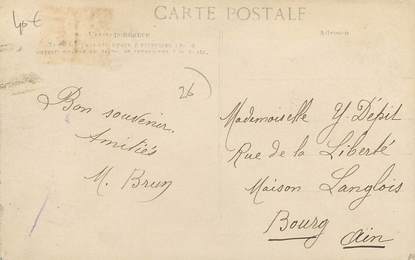 40€
CARTE POSTALE
Correspondance
Adresse
26
Bon souvenir.
Amitiés
M. Brun
Mademoiselle Y. Dépit
Rue de la Liberté
Maison Langlois
Bourg
Ain